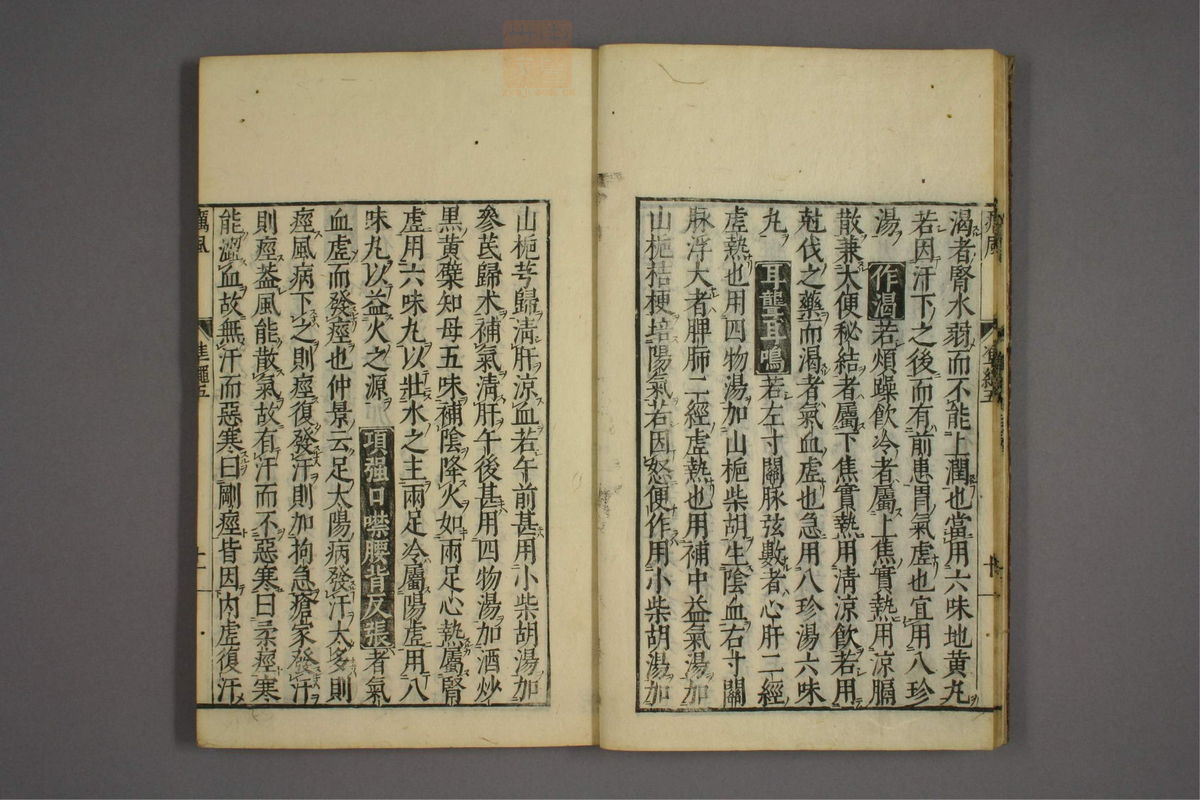 渴者腎水弱而不能上潤也當用六味地黃丸
若因汗下之後而有前患胃氣虛也宜用八珍
湯 作渴 若煩躁飲冷者屬上焦實熱用涼膈
散兼大便秘結者屬下焦實熱用淸涼飲若用
尅伐之藥而渴者氣血虛也急用八珍湯六味
丸 耳聾耳鳴 若左寸關脉弦數者心肝二經
虛熱也用四物湯加山梔柴胡生陰血右寸關
脉浮大者脾肺二經虛熱也用補中益氣湯加
山梔桔梗培陽氣若因怒便作用小柴胡湯加
山梔芎歸淸肝涼血若午前甚用小柴胡湯加
參芪歸术補氣淸肝午後甚用四物湯加酒炒
黑黃蘗知母五味補陰降火如兩足心熱屬腎
虛用六味丸以壯水之主兩足冷屬陽虛用八
味丸以益火之源 項强口噤腰背反張 者氣
血虛而發痙也仲景云足太陽病發汗太多則
痙風病下之則痙復發汗則加拘急瘡家發汗
則痙葢風能散氣故有汗而不惡寒曰柔痙寒
能澀血故無汗而惡寒曰剛痙皆因内虛復汗
癘風
準繩五